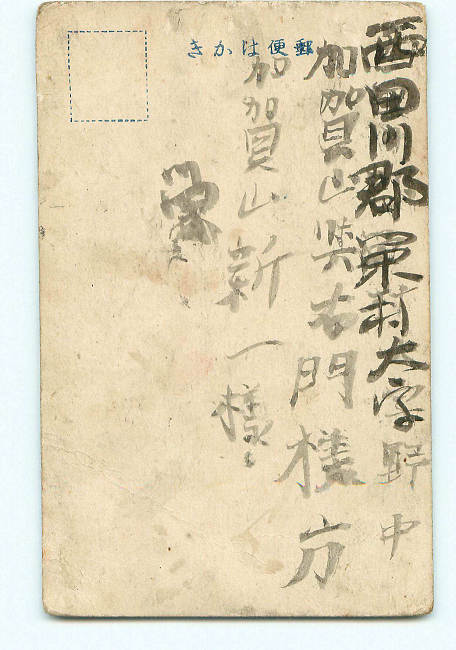 きかは便郵
西田川郡栄村大字野中
加賀山與右門様方
加賀山新一様